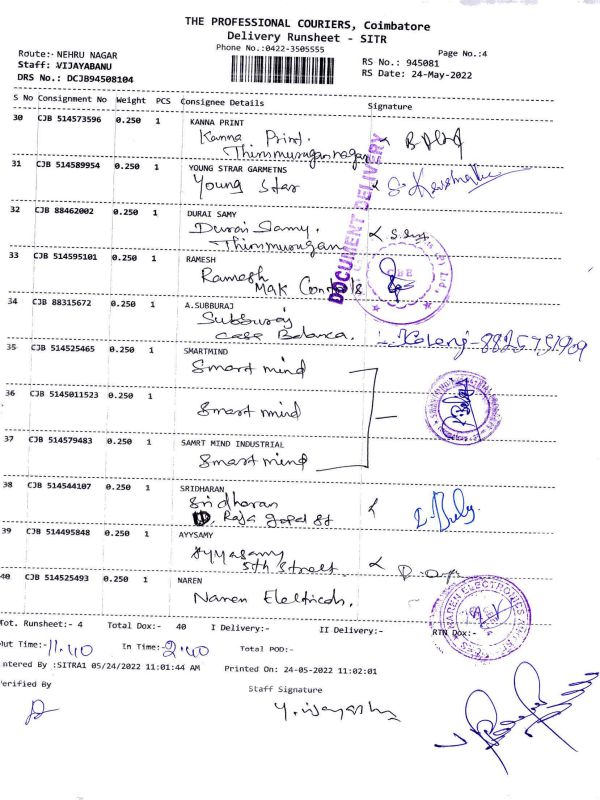 THE PROFESSIONAL COURIERS, Coimbatore
Delivery Runsheet - SITR
Phone No.:0422-3505555
Page No.:4
Route:- NEHRU NAGAR
RS No.: 945081
Staff: VIJAYABANU
RS Date: 24-May-2022
DRS No.: DCJB94508104
S No Consignment No Weight PCS Consignee Details Signature
30 CJB 514573596 0.250 1 KANNA PRINT
Kanna Print.
Thimmurugannagar
31 CJB 514589954 0.250 1 YOUNG STRAR GARMETNS
Young Star
32 CJB 88462002 0.250 1 DURAI SAMY
Durai Samy.
Thimmurugan
DOCUMENT DELIVERY
33 CJB 514595101 0.250 1 RAMESH
Ramesh
MAK Controls
CBE
34 CJB 88315672 0.250 1 A.SUBBURAJ
Subburaj
case Balanca.
35 CJB 514525465 0.250 1 SMARTMIND
Smart mind
36 CJB 5145011523 0.250 1
Smart mind
37 CJB 514579483 0.250 1 SAMRT MIND INDUSTRIAL
Smart mind
38 CJB 514544107 0.250 1 SRIDHARAN
Sridharan
Raja gopal st
39 CJB 514495848 0.250 1 AYYSAMY
Ayyasamy
5th street.
40 CJB 514525493 0.250 1 NAREN
Naren Eleltricoh.
Tot. Runsheet:- 4 Total Dox:- 40 I Delivery:- II Delivery:- RTN Dox:-
Out Time:- 11.40 In Time:- 2.40 Total POD:-
ntered By :SITRA1 05/24/2022 11:01:44 AM Printed On: 24-05-2022 11:02:01
erified By
Staff Signature